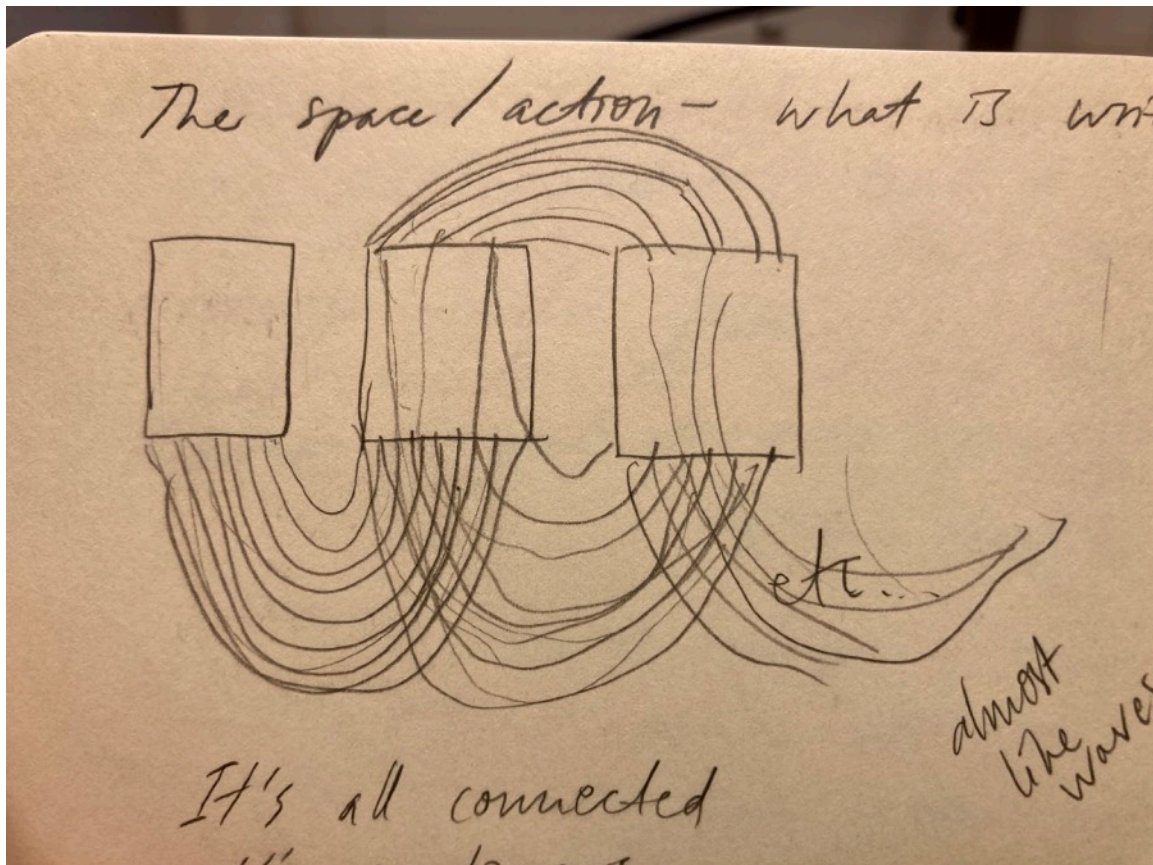 The space/action - what is
etc...
almost
like
waves
It's all connected